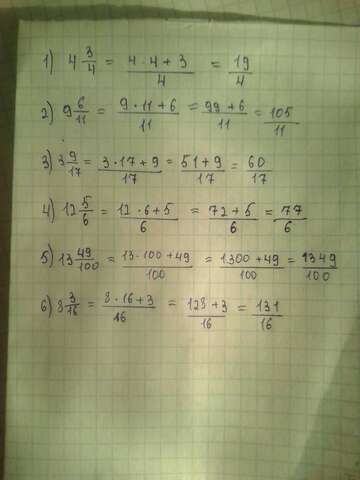 1) 4 3/4 = (4 · 4 + 3)/4 = 19/4
2) 9 6/11 = (9 · 11 + 6)/11 = (99 + 6)/11 = 105/11
3) 3 9/17 = (3 · 17 + 9)/17 = (51 + 9)/17 = 60/17
4) 12 5/6 = (12 · 6 + 5)/6 = (72 + 5)/6 = 77/6
5) 13 49/100 = (13 · 100 + 49)/100 = (1300 + 49)/100 = 1349/100
6) 8 3/16 = (8 · 16 + 3)/16 = (128 + 3)/16 = 131/16